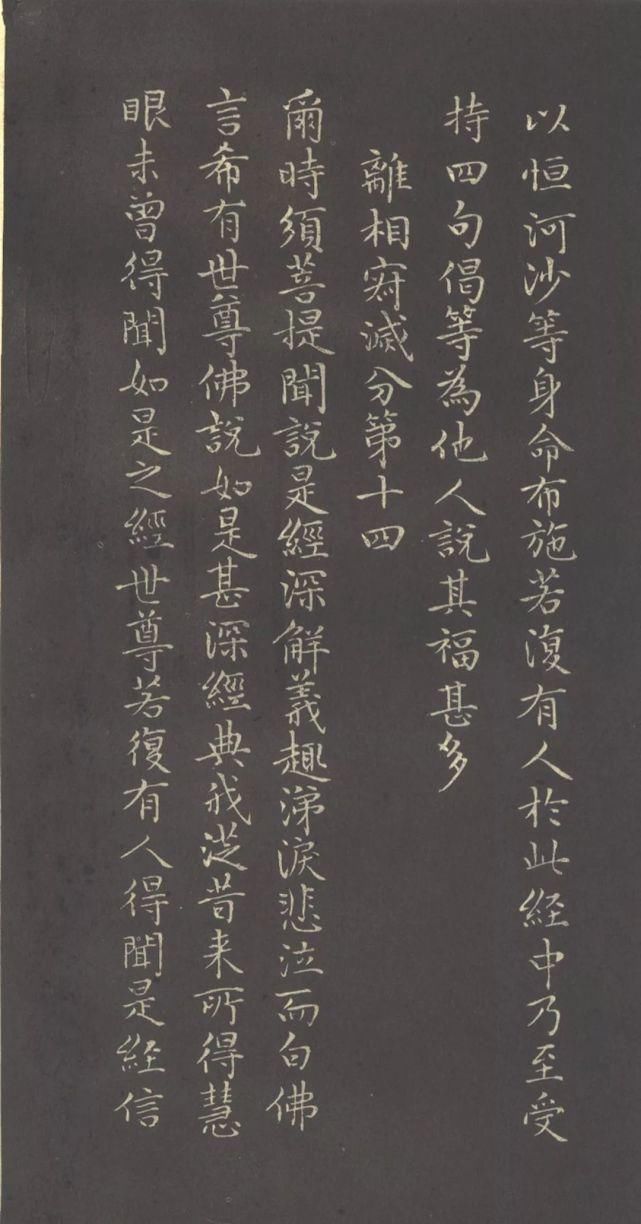 以恒河沙等身命布施若復有人於此經中乃至受
持四句偈等為他人說其福甚多
離相寂滅分第十四
爾時須菩提聞說是經深解義趣涕淚悲泣而白佛
言希有世尊佛說如是甚深經典我從昔来所得慧
眼未曾得聞如是之經世尊若復有人得聞是經信